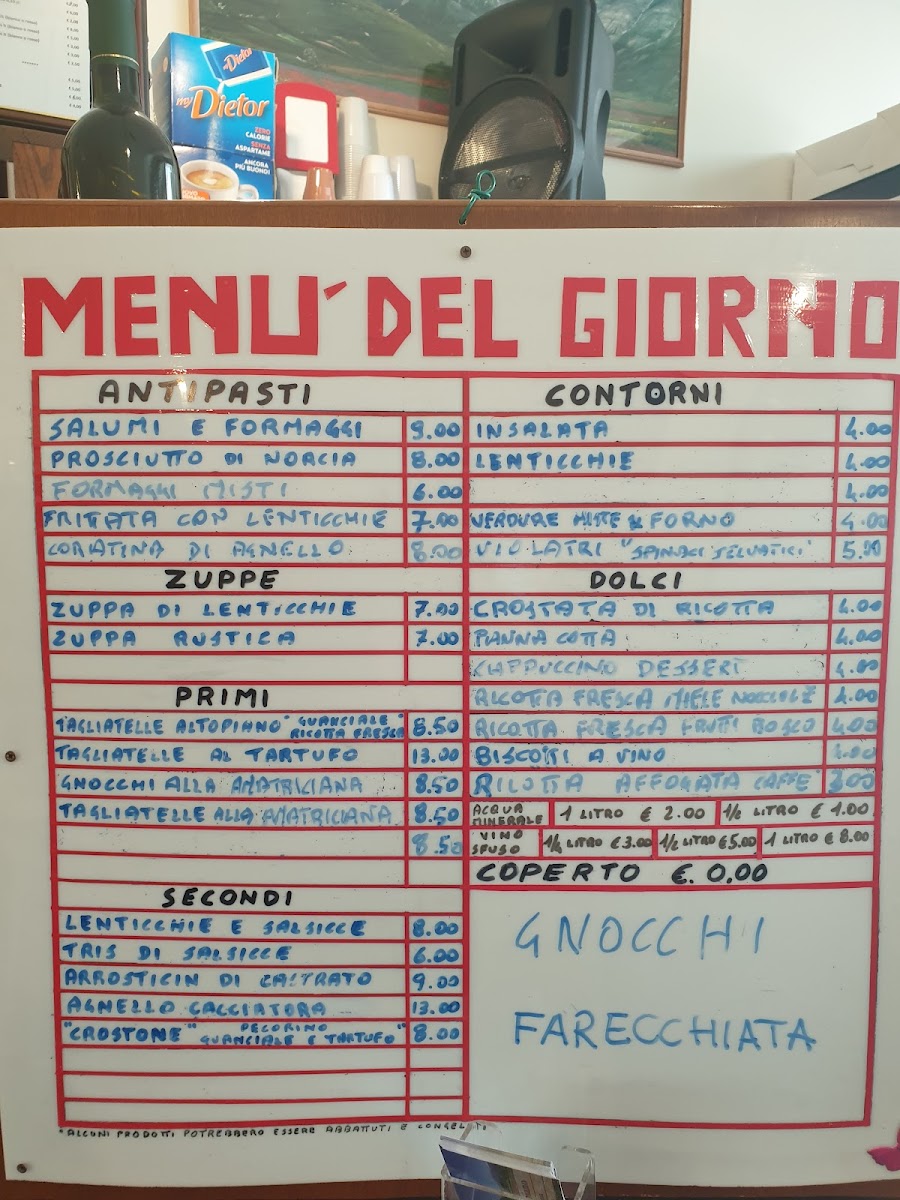 my Dietor
Dietor
ZERO
CALORIE
SENZA
ASPARTAME
ANCORA
PIÙ BUONO!
MENU' DEL GIORNO
ANTIPASTI
SALUMI E FORMAGGI 9.00
PROSCIUTTO DI NORCIA 8.00
FORMAGGI MISTI 6.00
FRITTATA CON LENTICCHIE 7.00
CORATINA DI AGNELLO 8.00
ZUPPE
ZUPPA DI LENTICCHIE 7.00
ZUPPA RUSTICA 7.00
PRIMI
TAGLIATELLE ALTOPIANO "GUANCIALE RICOTTA FRESCA" 8.50
TAGLIATELLE AL TARTUFO 13.00
GNOCCHI ALLA AMATRICIANA 8.50
TAGLIATELLE ALLA AMATRICIANA 8.50
8.50
SECONDI
LENTICCHIE E SALSICCE 8.00
TRIS DI SALSICCE 6.00
ARROSTICIN DI CASTRATO 9.00
AGNELLO CACCIATORA 13.00
"CROSTONE" PECORINO GUANCIALE E TARTUFO" 8.00
CONTORNI
INSALATA 4.00
LENTICCHIE 4.00
4.00
VERDURE MISTE FORNO 4.00
VIOLATRI "SPINACI SELVATICI" 5.00
DOLCI
CROSTATA DI RICOTTA 4.00
PANNA COTTA 4.00
CAPPUCCINO DESSERT 4.00
RICOTTA FRESCA MIELE NOCCIOLE 4.00
RICOTTA FRESCA FRUTTI BOSCO 4.00
BISCOTTI A VINO
RICOTTA AFFOGATA CAFFE' 3.00
ACQUA MINERALE 1 LITRO € 2.00 1/2 LITRO € 1.00
VINO SFUSO 1/4 LITRO € 3.00 1/2 LITRO € 5.00 1 LITRO € 8.00
COPERTO €. 0,00
GNOCCHI
FARECCHIATA
*ALCUNI PRODOTTI POTREBBERO ESSERE ABBATTUTI E CONGELATI